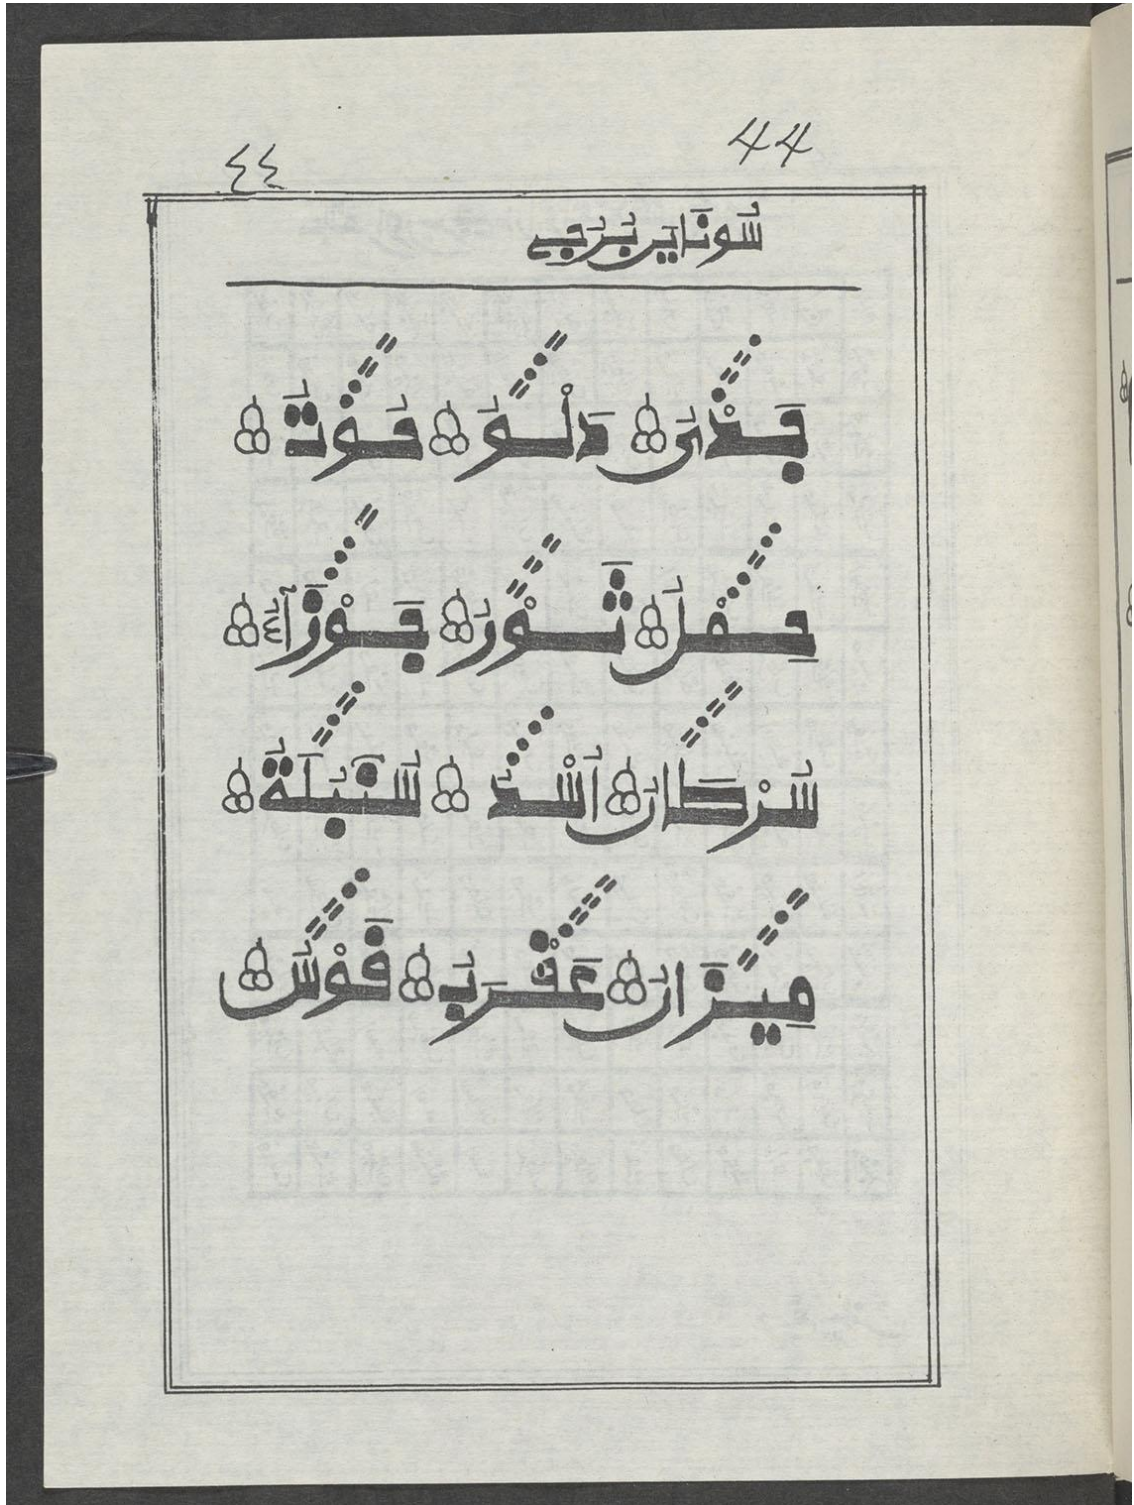 44 ٤٤
سوناين برجے
جدى دلو حوت
حمل ثور جوزآء
سرطان اسد سنبلة
ميزان عقرب قوس